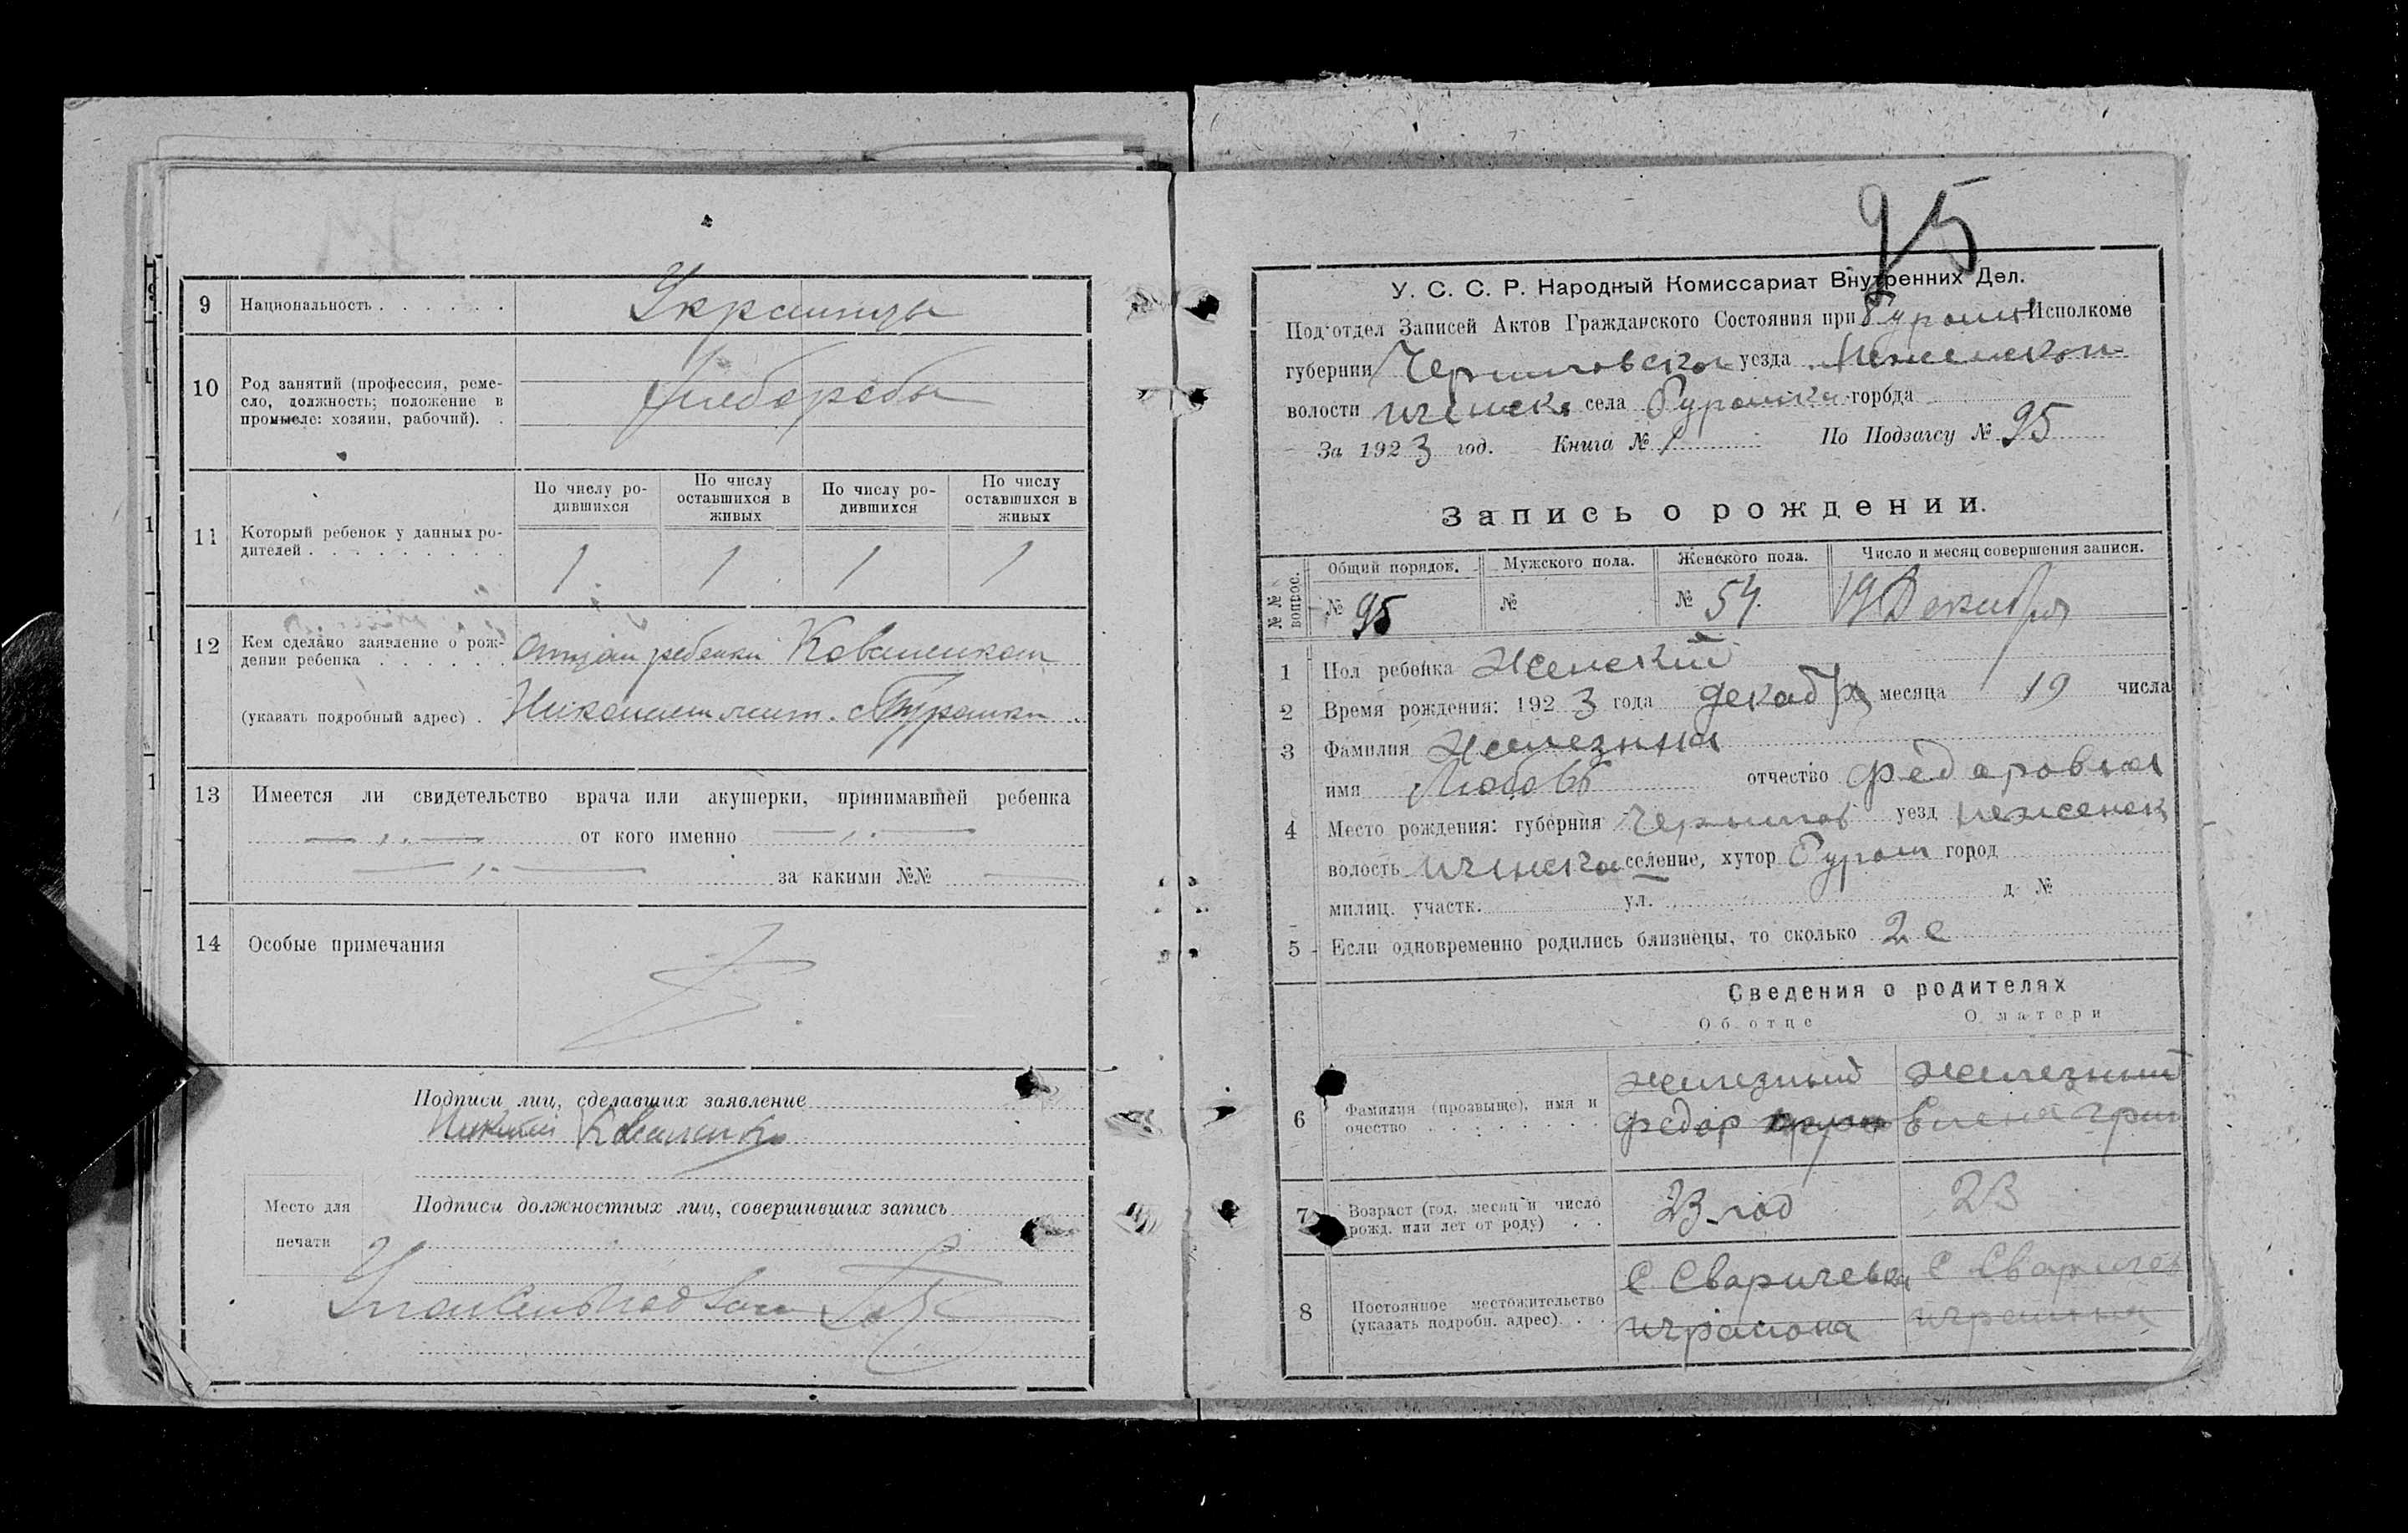 9 Национальность . . . . . . Украинцы
10 Род занятий (профессия, реме-
сло, должность; положение в
промысле: хозяин, рабочий). . Хлеборобы
По числу ро-
дившихся
По числу
оставшихся в
живых
По числу ро-
дившихся
По числу
оставшихся в
живых
11 Который ребенок у данных ро-
дителей . . . . . . . . .
1 1 1 1
12 Кем сделано заявление о рож-
дении ребенка . . . . . . отцом ребенка Коваленком
(указать подробный адрес) .
13 Имеется ли свидетельство врача или акушерки, принимавшей ребенка
от кого именно
за какими №№
14 Особые примечания
Подписи лиц, сделавших заявление
Коваленко
Место для
печати
Подписи должностных лиц, совершивших запись
95
У. С. С. Р. Народный Комиссариат Внутренних Дел.
Под‘отдел Записей Актов Гражданского Состояния при Исполкоме
губернии Черниговской уезда Неженской
волости села города
За 1923 год. Книга № 1 По Подзагсу № 95
Запись о рождении.
№ №
вопрос.
Общий порядок. Мужского пола. Женского пола. Число и месяц совершения записи.
№ 95 № № 54. 19 Декабря
1 Пол ребенка Женский
2 Время рождения: 1923 года декабря месяца 19 числа
3 Фамилия Железная
имя Любовь отчество Федаровна
4 Место рождения: губерния Чернигов уезд неженск
волость селение, хутор город
милиц. участк. ул. д №
5 Если одновременно родились близнецы, то сколько 2е
Сведения о родителях
Об отце О матери
6 Фамилия (прозвыще), имя и
очество . . . . . . . .
железный
Федор
железный
Елена Гри
7 Возраст (год, месяц и число
рожд. или лет от роду) . .
23 год 23
8 Постоянное местожительство
(указать подробн. адрес) . .
С Сваричевка
ичрайона
С Сваричев